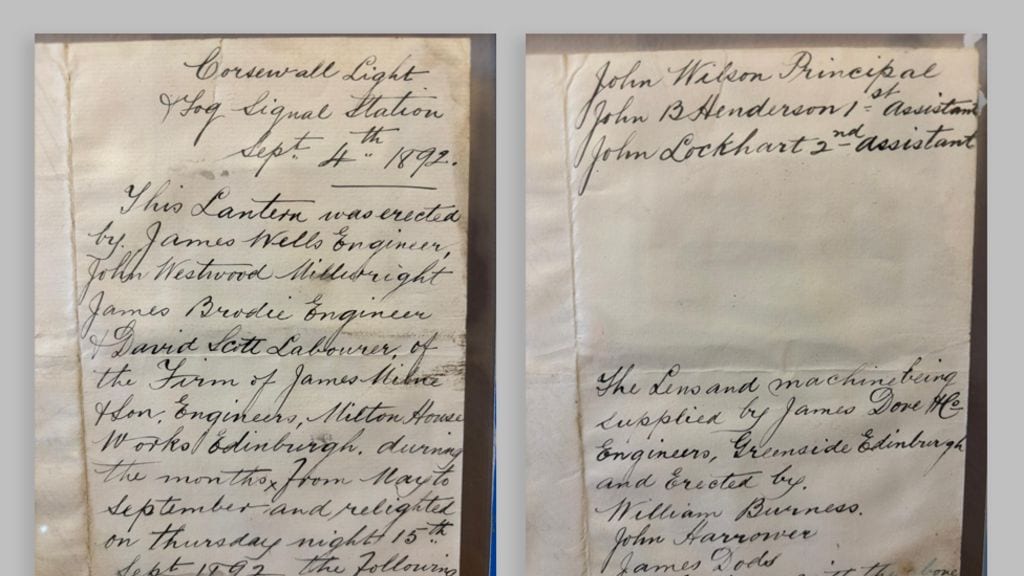 Corsewall Light
& Fog Signal Station
Sept. 4th 1892.
This Lantern was erected
by. James Wells Engineer,
John Westwood Millwright
James Brodie Engineer
& David Scott Labourer, of
the Firm of James Milne
& Son, Engineers, Milton House
Works Edinburgh. during
the months, from May to
September and relighted
on thursday night 15th
Sept 1892 the following
John Wilson Principal
John B Henderson 1st assistant
John Lockhart 2nd assistant
The Lens and machine being
supplied by James Dove & Co
Engineers, Greenside Edinburgh
and Erected by.
William Burness.
John Harrower
James Dods
with the above